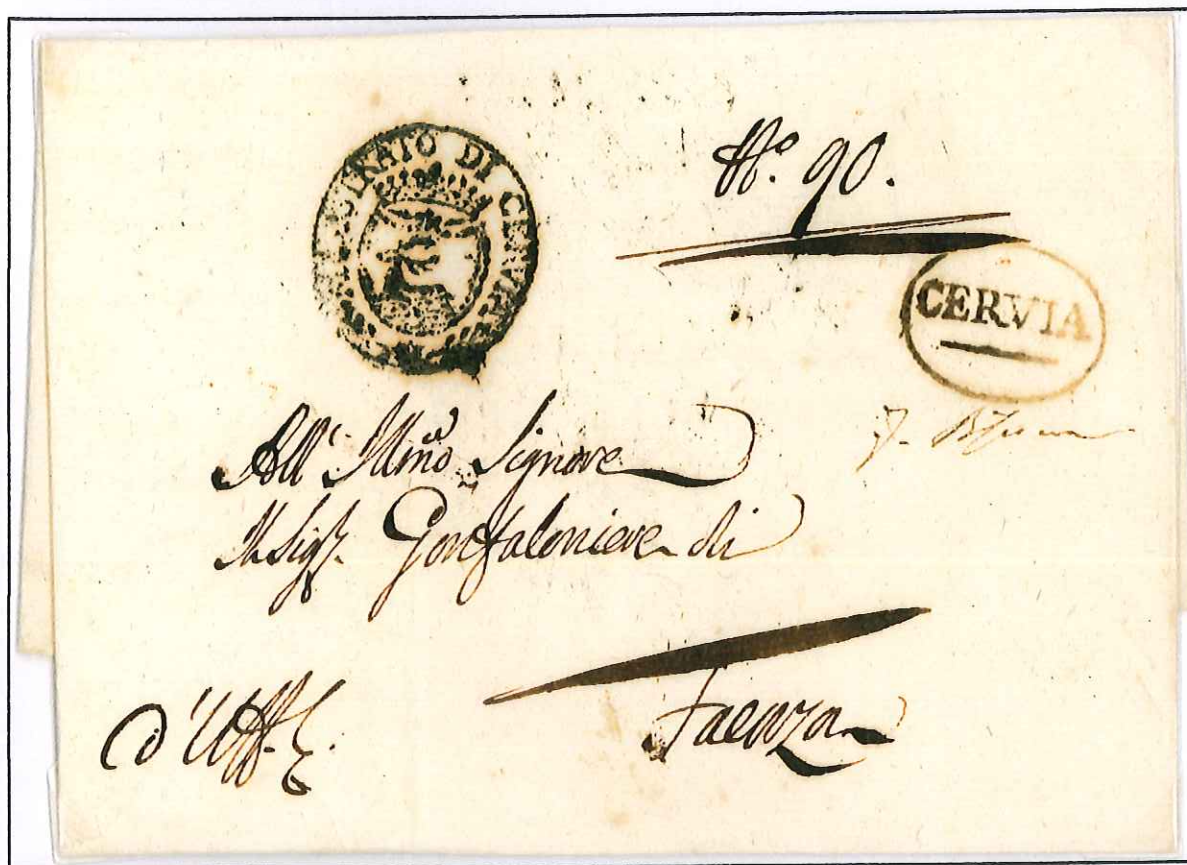 DI CERVIA
N.º 90.
CERVIA
All' Illmo Signore
Il Sigr. Gonfaloniere di
Faenza
d'Uff.